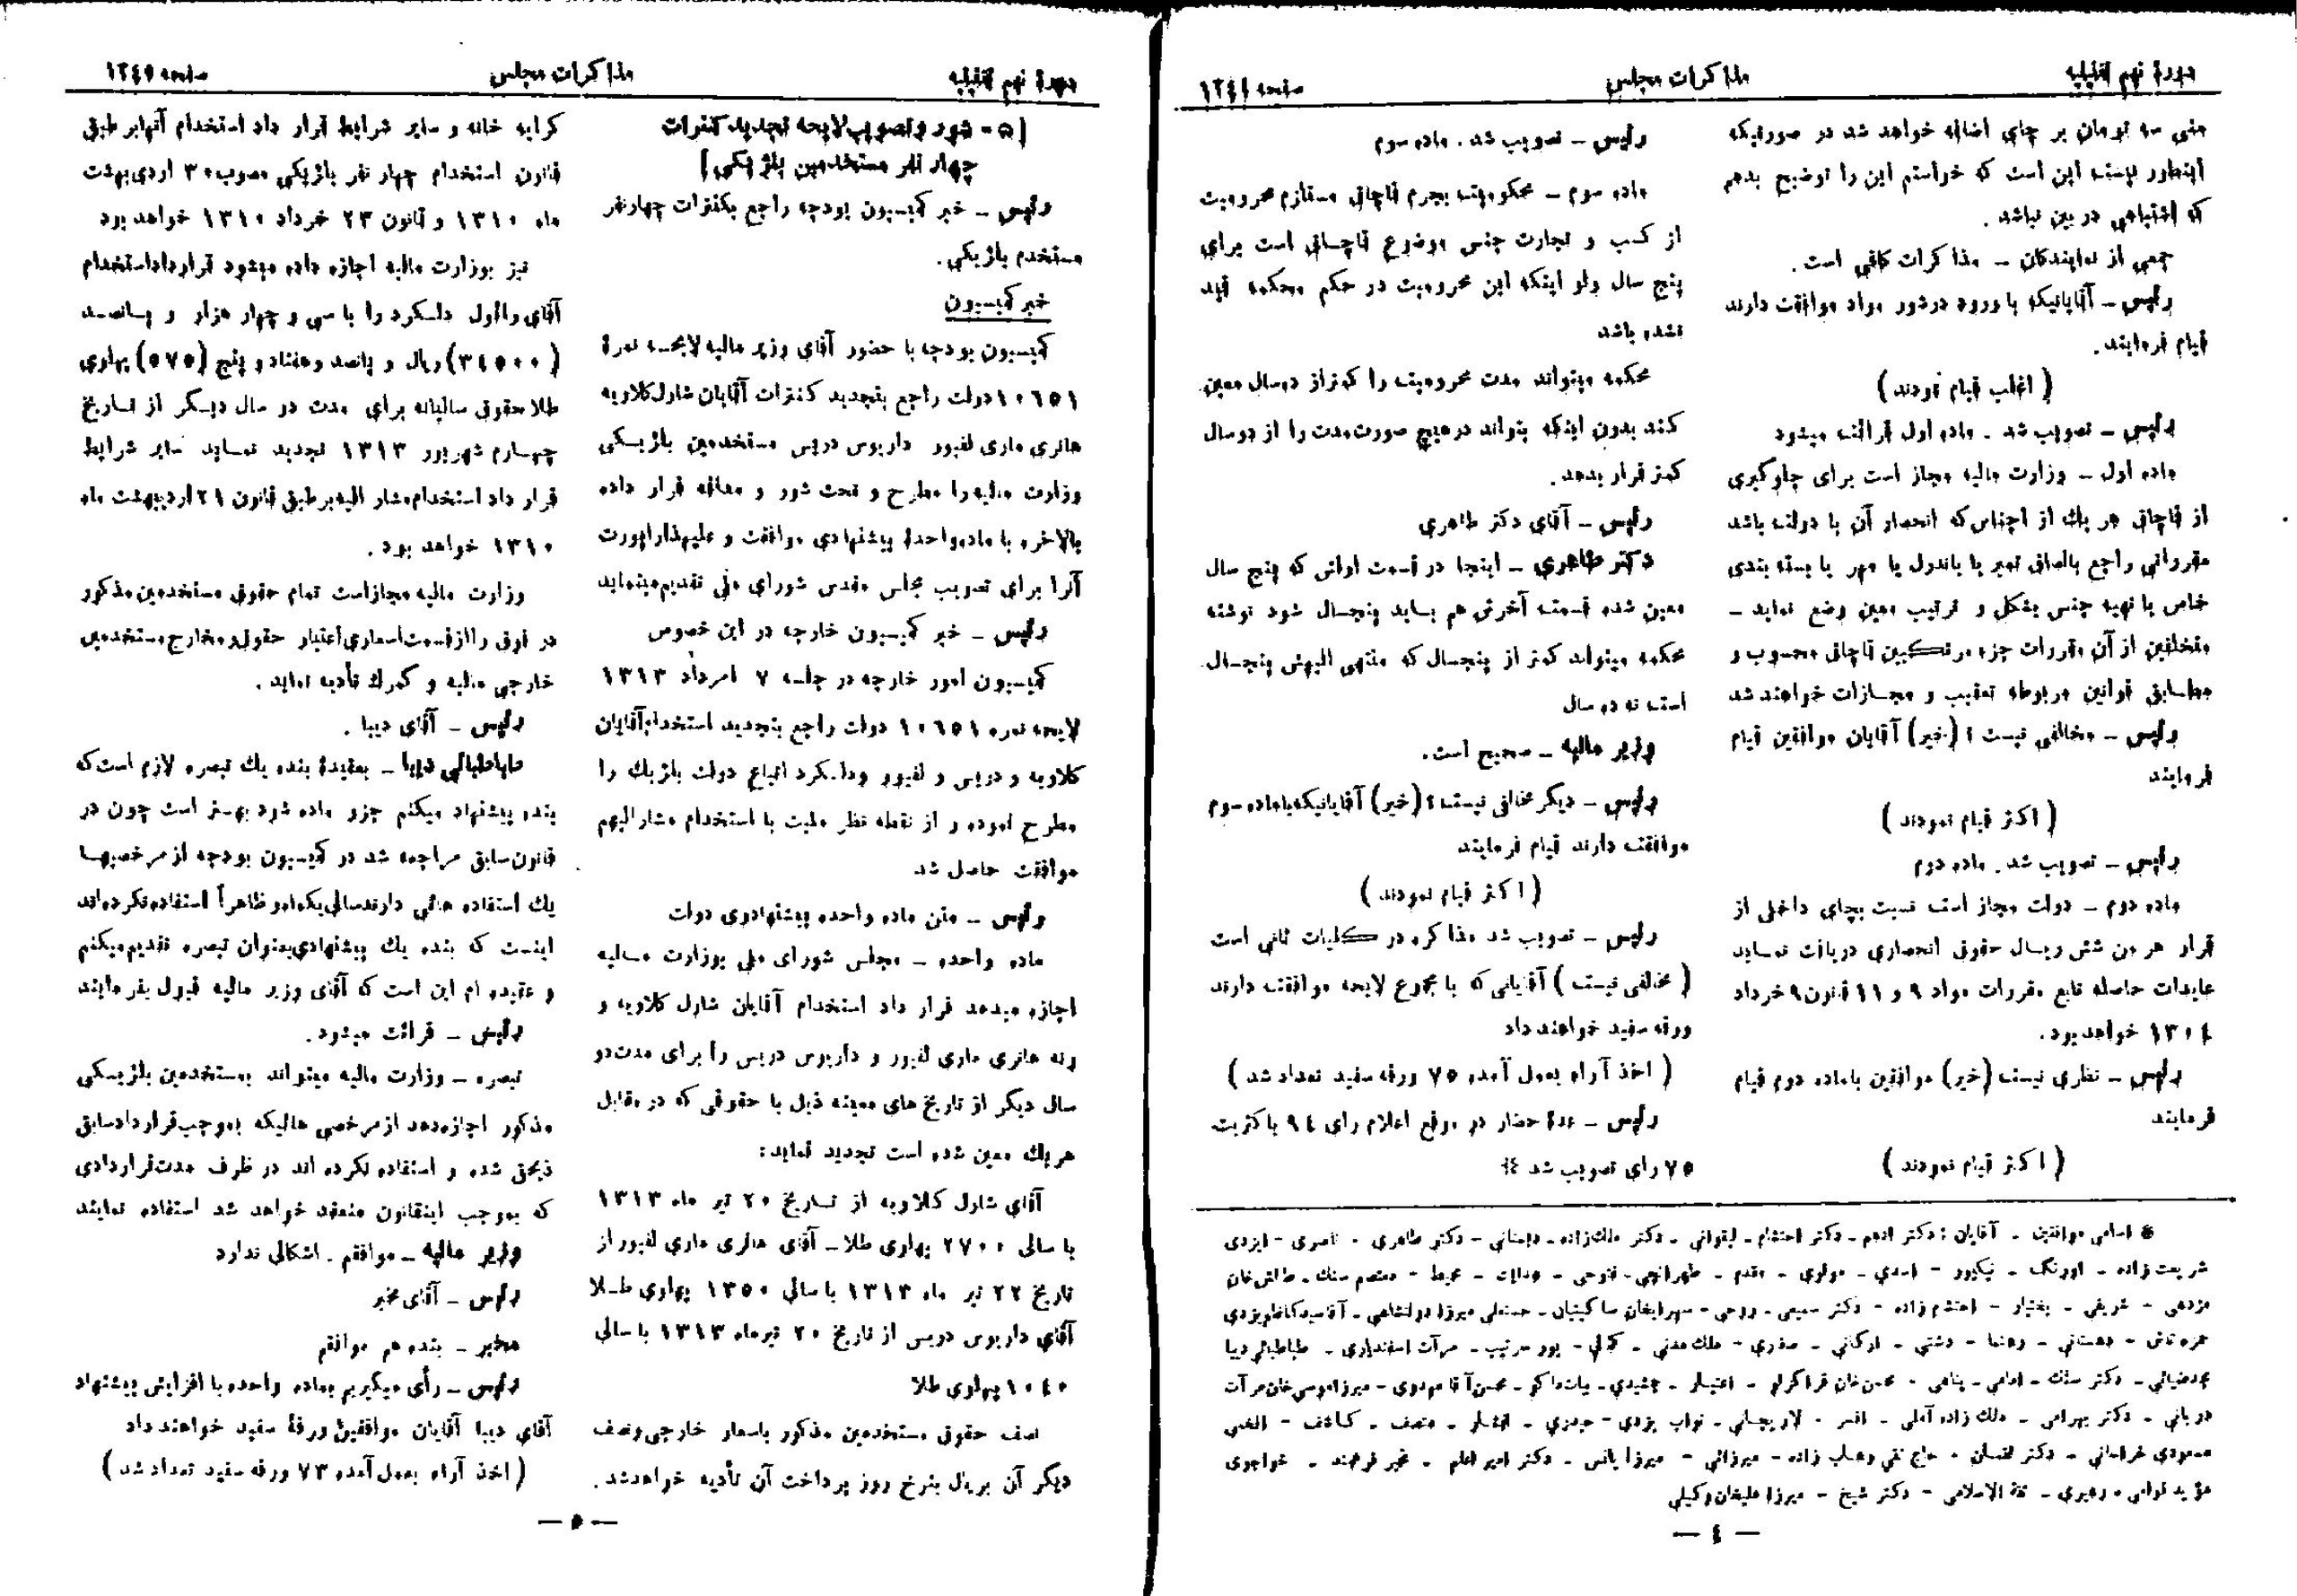 دورهٔ نهم تقنینیه
مذاکرات مجلس
صفحه ۱۲٤٤
منی سه تومان بر چای اضافه خواهد شد در صورتیکه
اینطور نیست این است که خواستم این را توضیح بدهم
که اشتباهی در بین نباشد .
جمعی از نمایندگان ـ مذاکرات کافی است .
رئیس ـ آقایانیکه با ورود درشور مواد موافقت دارند
قیام فرمایند.
( اغلب قیام نمودند )
رئیس ـ تصویب شد . ماده اول قرائت میشود
ماده اول ـ وزارت مالیه مجاز است برای جلوگیری
از قاچاق هر یك از اجناس که انحصار آن با دولت باشد
مقرراتی راجع بالصاق تمبر یا باندرول یا مهر یا بسته بندی
خاص یا تهیه جنس بشکل و ترتیب معین وضع نماید ـ
متخلفین از آن مقررات جزء مرتکبین قاچاق محسوب و
مطابق قوانین مربوطه تعقیب و مجازات خواهند شد
رئیس ـ مخالفی نیست ؟ (خیر) آقایان موافقین قیام
فرمایند
( اکثر قیام نمودند )
رئیس ـ تصویب شد. ماده دوم
ماده دوم ـ دولت مجاز است نسبت بچای داخلی از
قرار هر من شش ریال حقوق انحصاری دریافت نماید
عایدات حاصله تابع مقررات مواد ۹ و ۱۱ قانون ۹ خرداد
۱۳۰٤ خواهد بود.
رئیس ـ نظری نیست (خیر) موافقین باماده دوم قیام
فرمایند
( اکثر قیام نمودند )
رئیس ـ تصویب شد . ماده سوم
ماده سوم ـ محکومیت بجرم قاچاق مستلزم محرومیت
از کسب و تجارت جنس موضوع قاچاق است برای
پنج سال ولو اینکه این محرومیت در حکم محکمه قید
نشده باشد
محکمه میتواند مدت محرومیت را کمتراز دوسال معین
کند بدون اینکه بتواند درهیچ صورت مدت را از دوسال
کمتر قرار بدهد.
رئیس ـ آقای دکتر طاهری
دکتر طاهری ـ اینجا در قسمت اولش که پنج سال
معین شده قسمت آخرش هم باید پنجسال شود نوشته
محکمه میتواند کمتر از پنجسال که منتهی الیهش پنجسال
است نه دو سال
وزیر مالیه ـ صحیح است.
رئیس ـ دیگر مخالفی نیست؟ (خیر) آقایانیکه باماده سوم
موافقت دارند قیام فرمایند
( اکثر قیام نمودند )
رئیس ـ تصویب شد مذاکره در کلیات ثانی است
( مخالفی نیست ) آقایانی که با مجموع لایحه موافقت دارند
ورقه سفید خواهند داد
( اخذ آراء بعمل آمده ۷۵ ورقه سفید تعداد شد )
رئیس ـ عدهٔ حضار در موقع اعلام رای ۹٤ باکثریت
۷۵ رای تصویب شد *
* اسامی موافقین ـ آقایان : دکتر ادهم ـ دکتر احتشام ـ لیقوانی ـ دکتر ملك زاده ـ دبستانی ـ دکتر طاهری ـ ناصری ـ ایزدی
شریعت زاده ـ اورنگ ـ نیکپور ـ اسدی ـ مولوی ـ مقدم ـ طهرانچی ـ فتوحی ـ عدالت ـ محیط ـ معتصم سنك ـ طالش خان
مژدهی ـ شریفی ـ بختیار ـ احتشم زاده ـ دکتر سمیعی ـ روحی ـ سهرابخان ساکینیان ـ حسنعلی میرزا دولتشاهی ـ آقاسید کاظم یزدی
حمزه تاش ـ دهستانی ـ رهنما ـ دشتی ـ ارکانی ـ صفری ـ ملك مدنی ـ کمالی ـ پور سرتیپ ـ مرآت اسفندیاری ـ طباطبائی دیبا
محمد ضیائی ـ دکتر سنك ـ امامی ـ پناهی ـ محسن خان قراگزلو ـ اعتبار ـ جمشیدی ـ بیات ماکو ـ محسن آقا مهدوی ـ میرزا موسی خان مرآت
دربانی ـ دکتر بهرامی ـ ملك زاده آملی ـ افسر ـ لاریجانی ـ نواب یزدی ـ حیدری ـ افشار ـ منصف ـ کاشف ـ الفتی
مسعودی خراسانی ـ دکتر لقمان ـ حاج تقی وهاب زاده ـ میرزائی ـ میرزا یانس ـ دکتر امیر اعلم ـ مخبر فرهمند ـ خواجوی
مؤید قوامی ـ رهبری ـ ثقة الاسلامی ـ دکتر شیخ ـ میرزا علیخان وکیلی
— ٤ —
دورهٔ نهم تقنینیه
مذاکرات مجلس
صفحه ۱۲٤٥
[ ۵ ـ شور و تصویب لایحه تجدید کنترات
چهار نفر مستخدمین بلژیکی ]
رئیس ـ خبر کمیسیون بودجه راجع بکنترات چهارنفر
مستخدم بلژیکی.
خبر کمیسیون
کمیسیون بودجه با حضور آقای وزیر مالیه لایحه نمرهٔ
۱۰٦۵۱ دولت راجع بتجدید کنترات آقایان شارل کلاویه
هانری ماری لفبور داریوس دریس مستخدمین بلژیکی
وزارت مالیه را مطرح و تحت شور و مداقه قرار داده
بالاخره با ماده واحدهٔ پیشنهادی موافقت و علیهذا راپورت
آنرا برای تصویب مجلس مقدس شورای ملی تقدیم مینماید
رئیس ـ خبر کمیسیون خارجه در این خصوص
کمیسیون امور خارجه در جلسه ۷ امرداد ۱۳۱۳
لایحه نمره ۱۰٦۵۱ دولت راجع بتجدید استخدام آقایان
کلاویه و دریس و لفبور ودلسکرد اتباع دولت بلژیك را
مطرح نموده و از نقطه نظر ملیت با استخدام مشارالیهم
موافقت حاصل شد
رئیس ـ متن ماده واحده پیشنهادی دولت
ماده واحده ـ مجلس شورای ملی بوزارت مالیه
اجازه میدهد قرار داد استخدام آقایان شارل کلاویه و
رنه هانری ماری لفبور و داریوس دریس را برای مدت دو
سال دیگر از تاریخ های معینه ذیل با حقوقی که در مقابل
هریك معین شده است تجدید نماید:
آقای شارل کلاویه از تاریخ ۲۰ تیر ماه ۱۳۱۳
با سالی ۲۷۰۰ پهلوی طلا ـ آقای هانری ماری لفبور از
تاریخ ۲۲ تیر ماه ۱۳۱۳ با سالی ۱۳۵۰ پهلوی طلا
آقای داریوس دریس از تاریخ ۲۰ تیرماه ۱۳۱۳ با سالی
۱۰٤۰ پهلوی طلا
نصف حقوق مستخدمین مذکور باسعار خارجی ونصف
دیگر آن بریال بنرخ روز پرداخت آن تأدیه خواهدشد .
کرایه خانه و سایر شرایط قرار داد استخدام آنها بر طبق
قانون استخدام چهار نفر بلژیکی مصوب ۳۰ اردی بهشت
ماه ۱۳۱۰ و قانون ۲۳ خرداد ۱۳۱۰ خواهد بود
نیز بوزارت مالیه اجازه داده میشود قرارداد استخدام
آقای رااول دلسکرد را با سی و چهار هزار و پانصد
(۳٤۵۰۰) ریال و پانصد و هفتاد و پنج (۵۷۵) پهلوی
طلا حقوق سالیانه برای مدت دو سال دیگر از تاریخ
چهارم شهریور ۱۳۱۳ تجدید نماید سایر شرایط
قرار داد استخدام مشار الیه بر طبق قانون ۲۱ اردیبهشت ماه
۱۳۱۰ خواهد بود .
وزارت مالیه مجازاست تمام حقوق مستخدمین مذکور
در فوق را از قسمت اسعاری اعتبار حقوق و مخارج مستخدمین
خارجی مالیه و گمرك تأدیه نماید .
رئیس ـ آقای دیبا .
طباطبائی دیبا ـ بعقیدهٔ بنده یك تبصره لازم است که
بنده پیشنهاد میکنم جزو ماده شود بهتر است چون در
قانون سابق مراجعه شد در کمیسیون بودجه از مرخصیها
یك استفاده هائی دارند سالی یکماه و ظاهراً استفاده نکرده اند
اینست که بنده یك پیشنهادی بعنوان تبصره تقدیم میکنم
و عقیده ام این است که آقای وزیر مالیه قبول بفرمایند
رئیس ـ قرائت میشود.
تبصره ـ وزارت مالیه میتواند بمستخدمین بلژیکی
مذکور اجازه دهد از مرخصی هائیکه بموجب قرارداد سابق
ذیحق شده و استفاده نکرده اند در ظرف مدت قراردادی
که بموجب اینقانون منعقد خواهد شد استفاده نمایند
وزیر مالیه ـ موافقم . اشکالی ندارد
رئیس ـ آقای مخبر
مخبر ـ بنده هم موافقم
رئیس ـ رأی میگیریم بماده واحده با افزایش پیشنهاد
آقای دیبا آقایان موافقین ورقهٔ سفید خواهند داد
( اخذ آراء بعمل آمده ۷۳ ورقه سفید تعداد شد )
— ۵ —